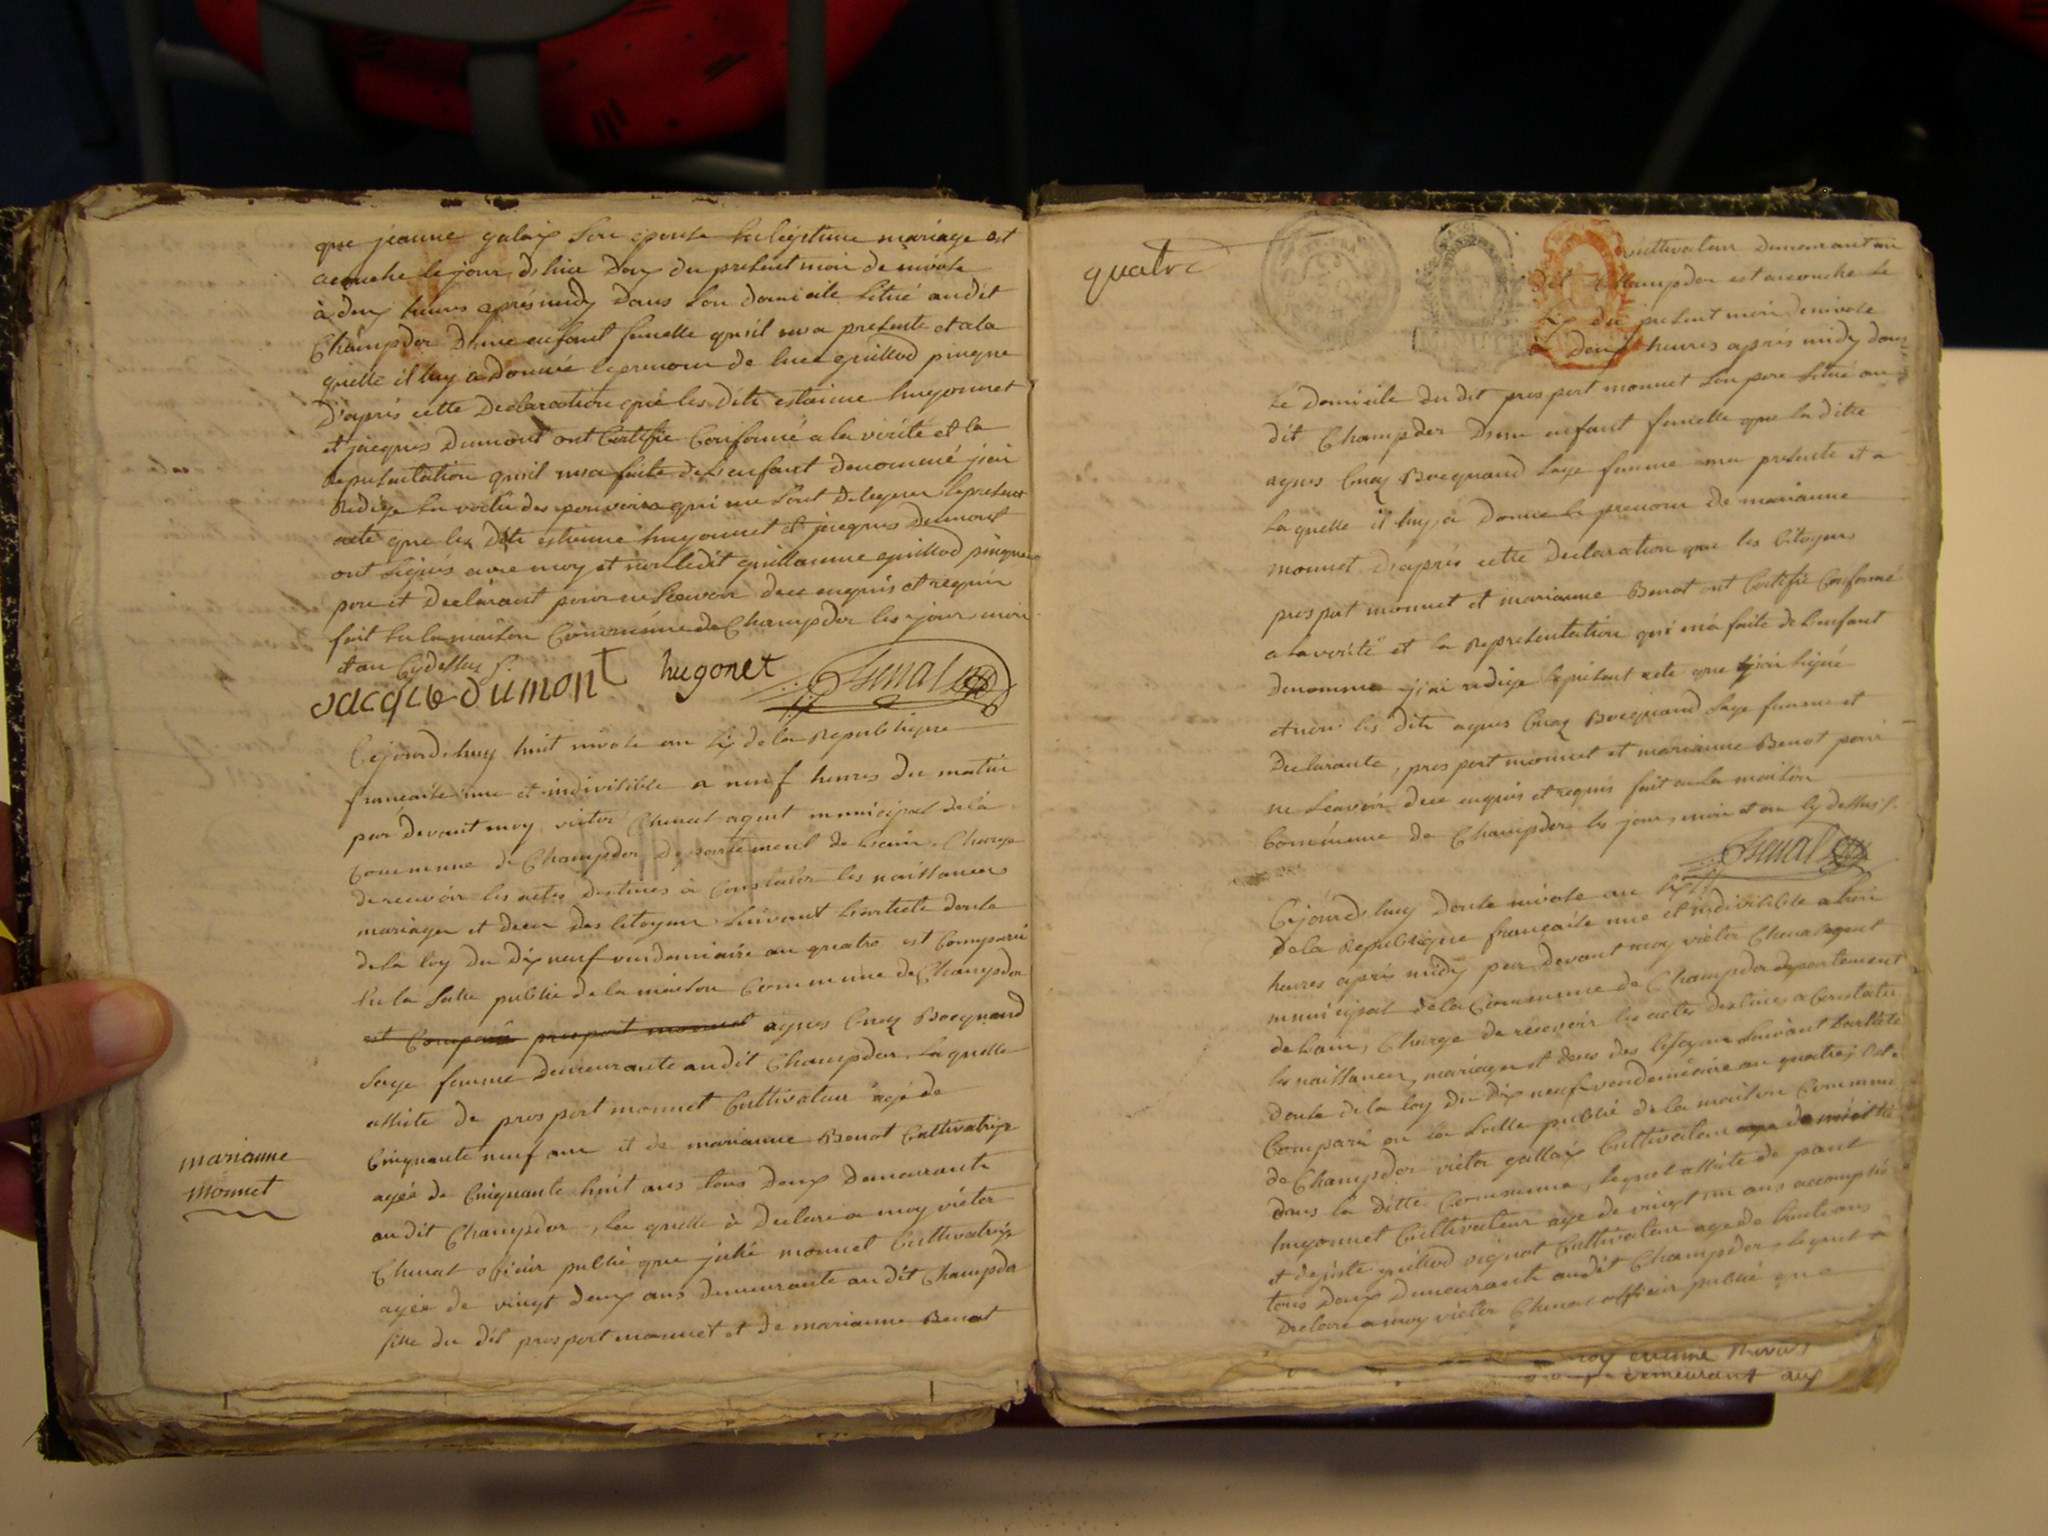 que jeanne galaix son epouse en legitime mariage est
acouche le jour d'hier du present mois de nivose
à deux heures après midy dans son domicile situé audit
Champdor d'une enfant femelle qu'il m'a presenté et a la
quelle il luy a donné le prenom de guillod pingne
D'après cette Declaration que les dits estienne hugonnet
et jacques dumont ont Certifié Conforme a la verité et la
representation qu'il m'a faite de l'enfant denommé j'ai
redigé en vertu des pouvoirs qui me sont delegues le present
acte que les dits estienne hugonnet et jacques Dumont
ont signés avec moy et non ledit guillaume guillod pingne
pere et declarant pour ne scavoir de ce enquis et requis
fait en la maison Commune de Champdor les jour mois
et an Cydessus
Jacque dumont hugonet Chenal
Cejourdhuy huit nivose an six de la Republique
francaise une et indivisible a neuf heures du matin
par devant moy victor Chenal agent municipal de la
Commune de Champdor departement de Lain, Charge
de recevoir les actes destines à constater les naissances
mariages et deces des Citoyens suivant l'article douze
de la loy du Dix neuf vendemiaire an quatre est Comparu
en la salle public de la maison Commune de Champdor
est Comparu prospert monnet agnes Bocquand
sage femme demeurante audit Champdor, la quelle
assiste de prospert monnet Cultivateur agé de
Cinquante neuf ans et de marianne Benot Cultivatrice
agée de Cinquante huit ans tous deux demeurants
audit Champdor, la quelle à Declaré a moy victor
Chenal officier public que julie monnet Cultivatrice
agée de vingt deux ans demeurante audit Champdor
fille du dit prospert monnet et de marianne Benot
marianne
monnet
quatre
cultivateur demeurant au
dit Champdor est accouche le
six du present mois de nivose
à deux heures après midy dans
le domicile du dit prospert monnet son pere situé au
dit Champdor d'une enfant femelle que la dite
agnes Bocquand sage femme ma presenté et a
la quelle il luy a donné le prenom de marianne
monnet D'après cette Declaration que les Citoyens
prospert monnet et marianne Benot ont Certifié Conforme
a la verité et la representation qui ma faite de l'enfant
denommé j'ai redigé le present acte que j'ai signé
et non les dits agnes Bocquand sage femme et
Declarante, prospert monnet et marianne Benot pour
ne scavoir de ce enquis et requis fait en la maison
Commune de Champdor les jour, mois et an Cy dessus
Chenal
Cejourdhuy douse nivose an six
de la Republique francaise une et indivisible a trois
heures après midy par devant moy victor Chenal agent
municipal de la Commune de Champdor departement
de Lain, Charge de recevoir les actes destines a Constater
les naissances, mariages et deces des Citoyens suivant l'article
douse de la loy du Dix neuf vendemiaire an quatre, est
Comparu en la salle public de la maison Commune
de Champdor victor gallaix Cultivateur
dans la ditte Commune, lequel assiste de
hugonnet Cultivateur agé de vingt un ans accomplis
et de guillod vignot Cultivateur age de trente ans
tous deux demeurants audit Champdor, lequel a
Declaré a moy victor Chenal officier public que
moy etienne
demeurant aux